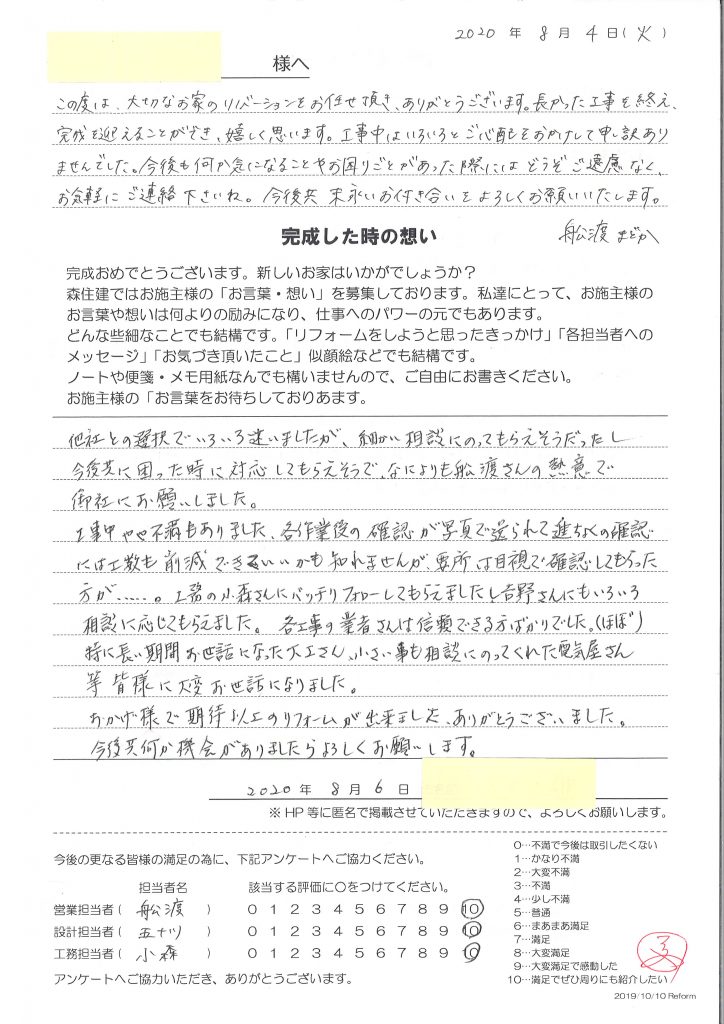 2020 年 8 月 4 日(火)
様へ
この度は、大切なお家のリノベーションをお任せ頂き、ありがとうございます。長かった工事を終え、
完成を迎えることができ、嬉しく思います。工事中はいろいろとご心配をおかけして申し訳あり
ませんでした。今後も何か気になることやお困りごとがあった際にはどうぞご遠慮なく、
お気軽にご連絡下さいね。今後共末永いお付き合いをよろしくお願いいたします。
完成した時の想い
舩渡 まどか
完成おめでとうございます。新しいお家はいかがでしょうか？
森住建ではお施主様の「お言葉・想い」を募集しております。私達にとって、お施主様の
お言葉や想いは何よりの励みになり、仕事へのパワーの元でもあります。
どんな些細なことでも結構です。「リフォームをしようと思ったきっかけ」「各担当者への
メッセージ」「お気づき頂いたこと」似顔絵などでも結構です。
ノートや便箋・メモ用紙なんでも構いませんので、ご自由にお書きください。
お施主様の「お言葉をお待ちしておりあます。
他社との選択でいろいろ迷いましたが、細かい相談にのってもらえそうだったし
今後共に困った時に対応してもらえそうで、なによりも舩渡さんの熱意で
御社にお願いしました。
工事中やや不満もありました、各作業後の確認が写真で送られて進ちょくの確認
には工数も削減できていいかも知れませんが、要所は目視で確認してもらった
方が……。工務の小森さんにバッチリフォローしてもらえましたし吉野さんにもいろいろ
相談に応じてもらえました。各工事の業者さんは信頼できる方ばかりでした。(ほぼ)
特に長い期間お世話になった大工さん、小さい事も相談にのってくれた電気屋さん
等皆様に大変お世話になりました。
おかげ様で期待以上のリフォームが出来ました、ありがとうございました。
今後共何か機会がありましたらよろしくお願いします。
2020 年 8 月 6 日
※ HP 等に匿名で掲載させていただきますので、よろしくお願いします。
今後の更なる皆様の満足の為に、下記アンケートへご協力ください。
担当者名 該当する評価に〇をつけてください。
営業担当者( 舩渡 ) 0 1 2 3 4 5 6 7 8 9 10
設計担当者( 五十川 ) 0 1 2 3 4 5 6 7 8 9 10
工務担当者( 小森 ) 0 1 2 3 4 5 6 7 8 9 10
アンケートへご協力いただき、ありがとうございます。
0…不満で今後は取引したくない
1…かなり不満
2…大変不満
3…不満
4…少し不満
5…普通
6…まあまあ満足
7…満足
8…大変満足
9…大変満足で感動した
10…満足でぜひ周りにも紹介したい
2019/10/10 Reform